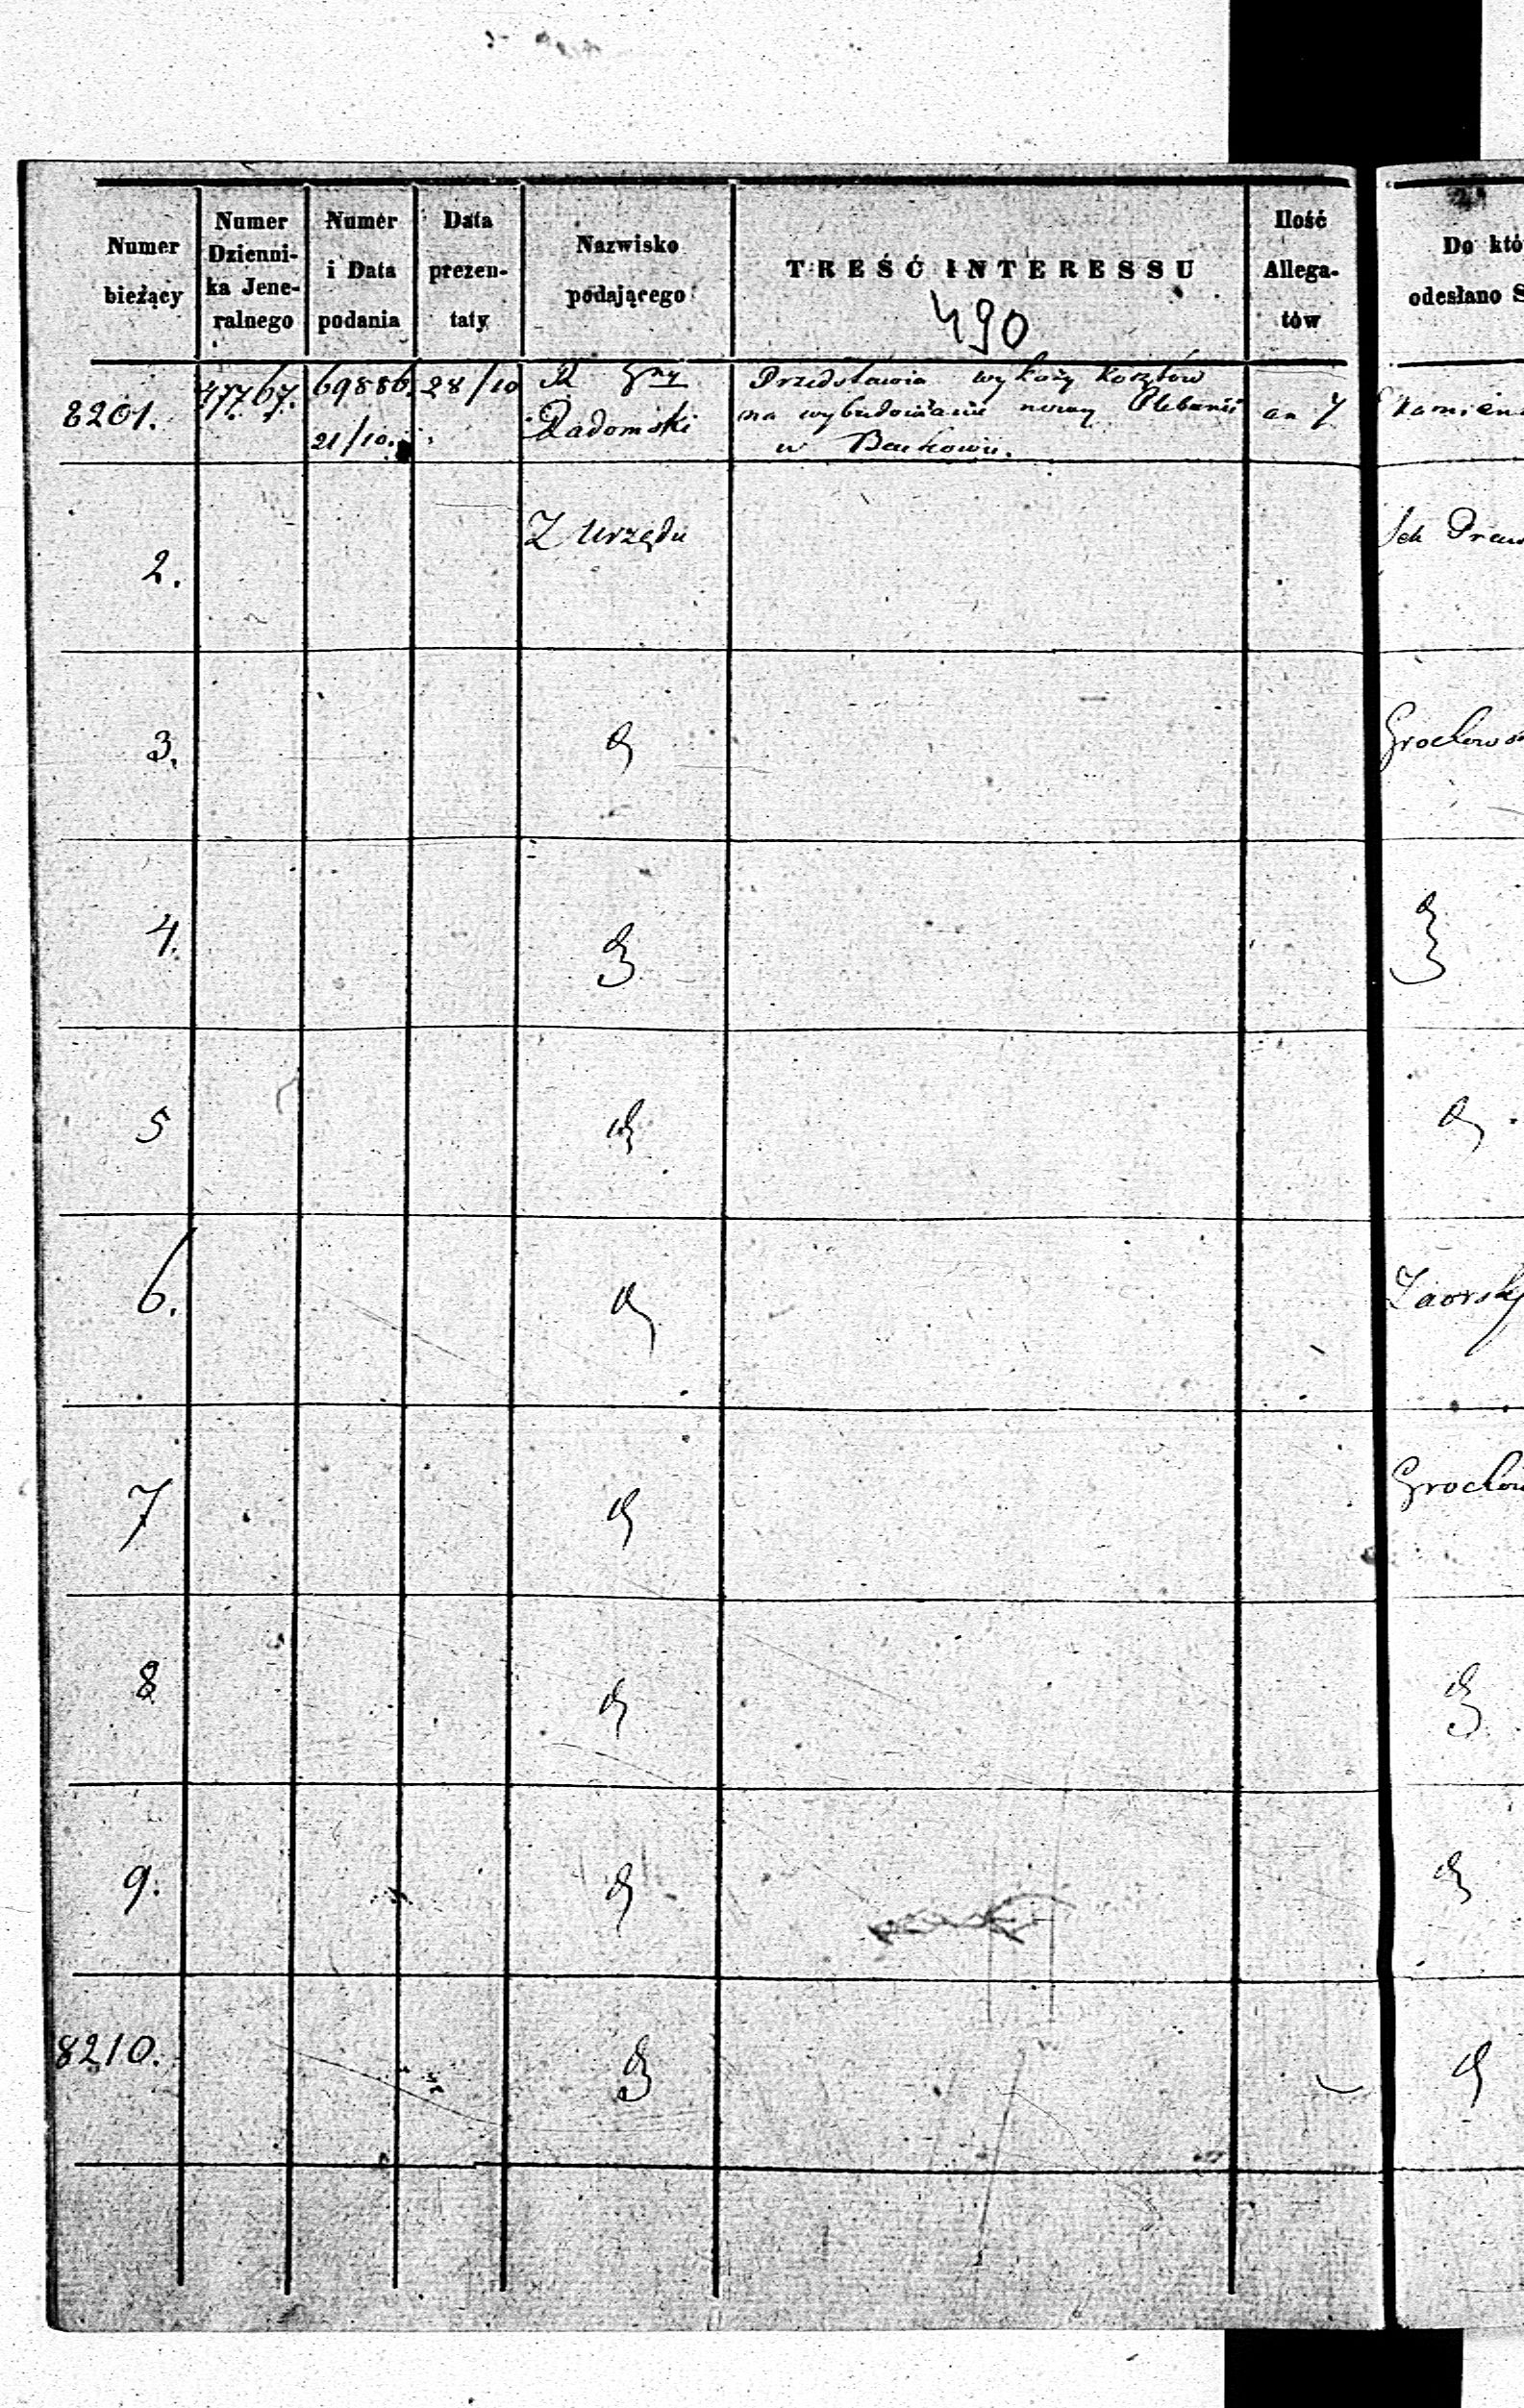 Numer
bieżący
Numer
Dzienni-
ka Jene-
ralnego
Numer
i Data
podania
Data
prezen-
taty
Nazwisko
podającego
TREŚĆ INTERESSU
490
Ilość
Allega-
tów
Do któ
odesłano S
8201.
47767.
69886.
21/10.
28/10
R. Gny
Radomski
Przedstawia wykazy kosztów
na wybudowanie nowey Plebanii
w
an 7
Kamien
2.
Z Urzędu
3.
Grochows
4.
5
6.
Zaorsk
7
Grochow
8
9.
8210.